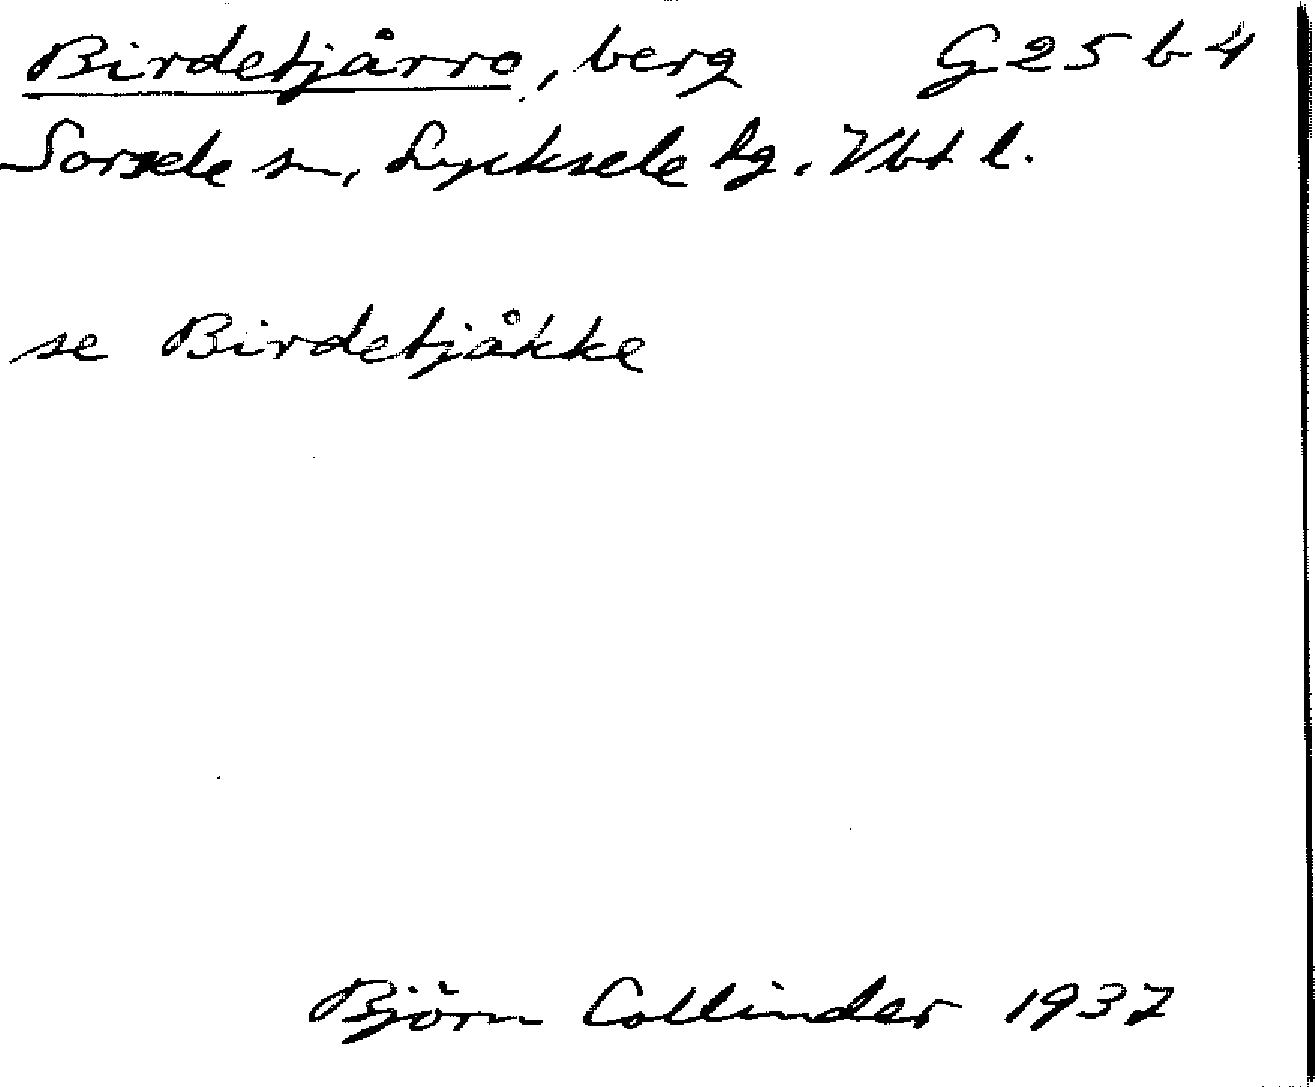 Birdetjårro, berg G 25 b 4
Sorsele sn, Lycksele lg. Vbt l.
se Birdetjåkke
Björn Collinder 1937